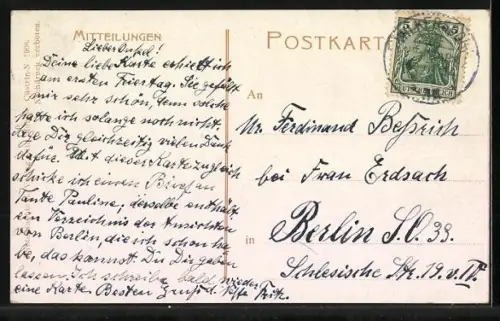 MITTEILUNGEN
Lieber Onkel!
Deine liebe Karte erhielt ich
am ersten Feiertag. Sie gefällt
mir sehr schön, denn solche
hatte ich solange noch nicht.
Sage Dir gleichzeitig vielen Dank
dafür. Mit dieser Karte zugleich
schicke ich einen Brief an
Tante Pauline, derselbe enthält
ein Verzeichnis der Ansichten
von Berlin, die ich schon ha-
be, das kannst Du Dir geben
lassen. Ich schreibe bald wieder
eine Karte. Besten Gruß d. Neffe Fritz.
Nachdruck verboten.
POSTKARTE
An
Mr. Ferdinand
bei Frau Erdsach
in Berlin S.O. 33.
Schlesische Str. 19. v. IV.